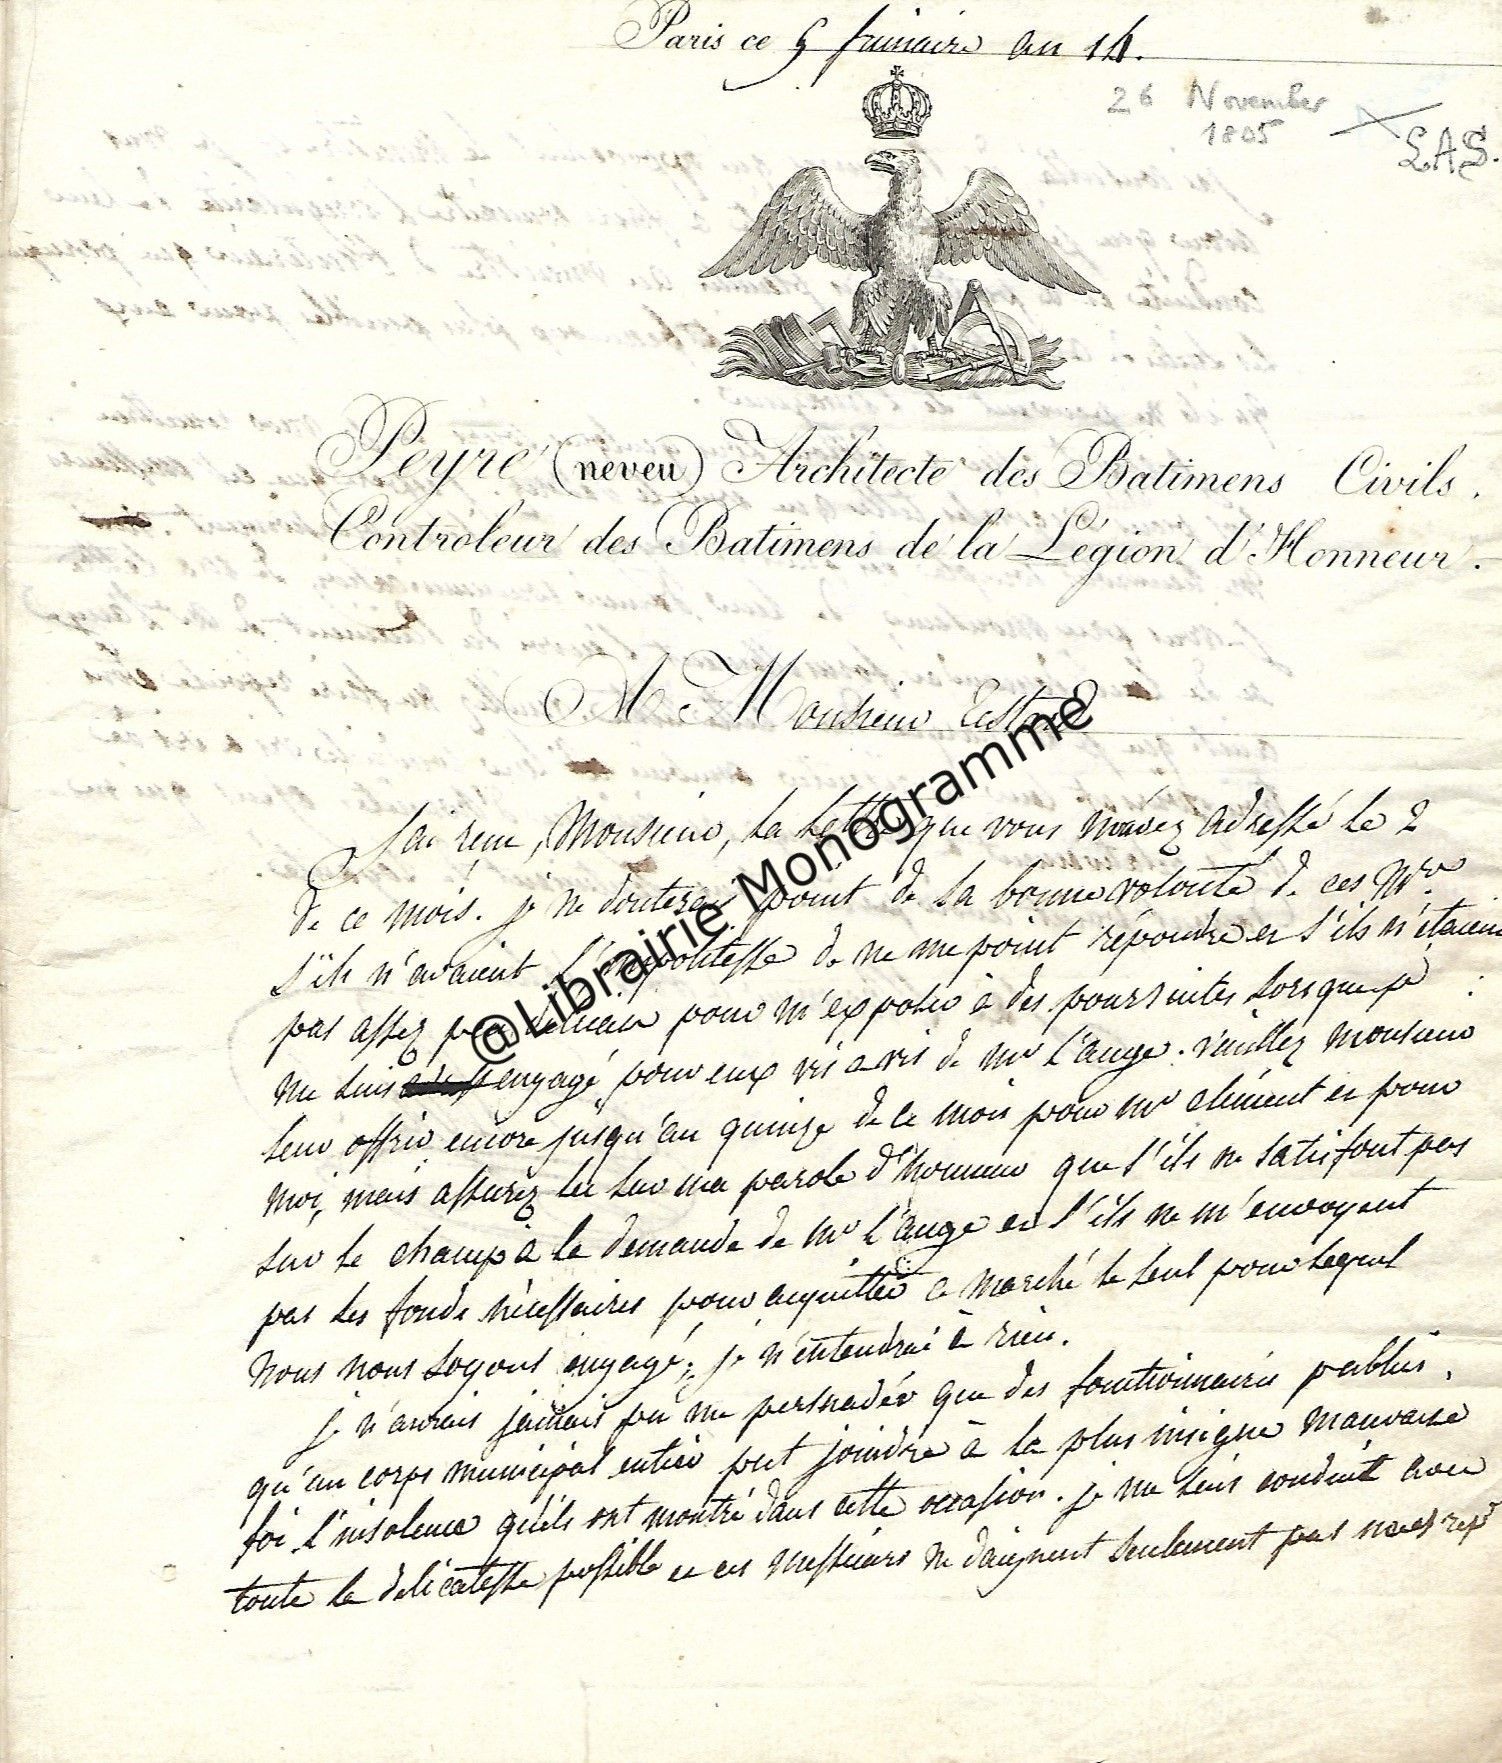 Paris ce 5 frimaire an 14.
26 November
1805
LAS.
Peyre (neveu) Architecte des Batimens Civils.
Controleur des Batimens de la Légion d'Honneur.
A Monsieur
J'ai reçu, Monsieur, la lettre que vous m'avez adressé le 2
de ce mois. je ne douterai point de la bonne volonté de ces Mrs
s'ils n'avaient l'impolitesse de ne me point répondre et s'ils n'étaient
pas assez peu délicats pour m'exposer à des poursuites lorsque je
me suis engagé pour eux vis a vis de Mr L'ange. veuillez Monsieur
leur offrir encore jusqu'au quinze de ce mois pour Mr clément et pour
moi, mais assurez les sur ma parole d'honneur que s'ils ne satisfont pas
sur le champ à la demande de Mr L'ange et s'ils ne m'envoyent
pas les fonds nécessaires pour acquitter ce marché le seul pour lequel
nous nous soyons engagé, je n'entendrai à rien.
je n'aurais jamais pu me persuader que des fonctionnaires publics,
qu'un corps municipal entier put joindre à la plus insigne mauvaise
foi l'insolence qu'ils ont montré dans cette occasion. je me suis conduit avec
toute la délicatesse possible et ces messieurs ne daignent seulement pas
@Librairie Monogramme